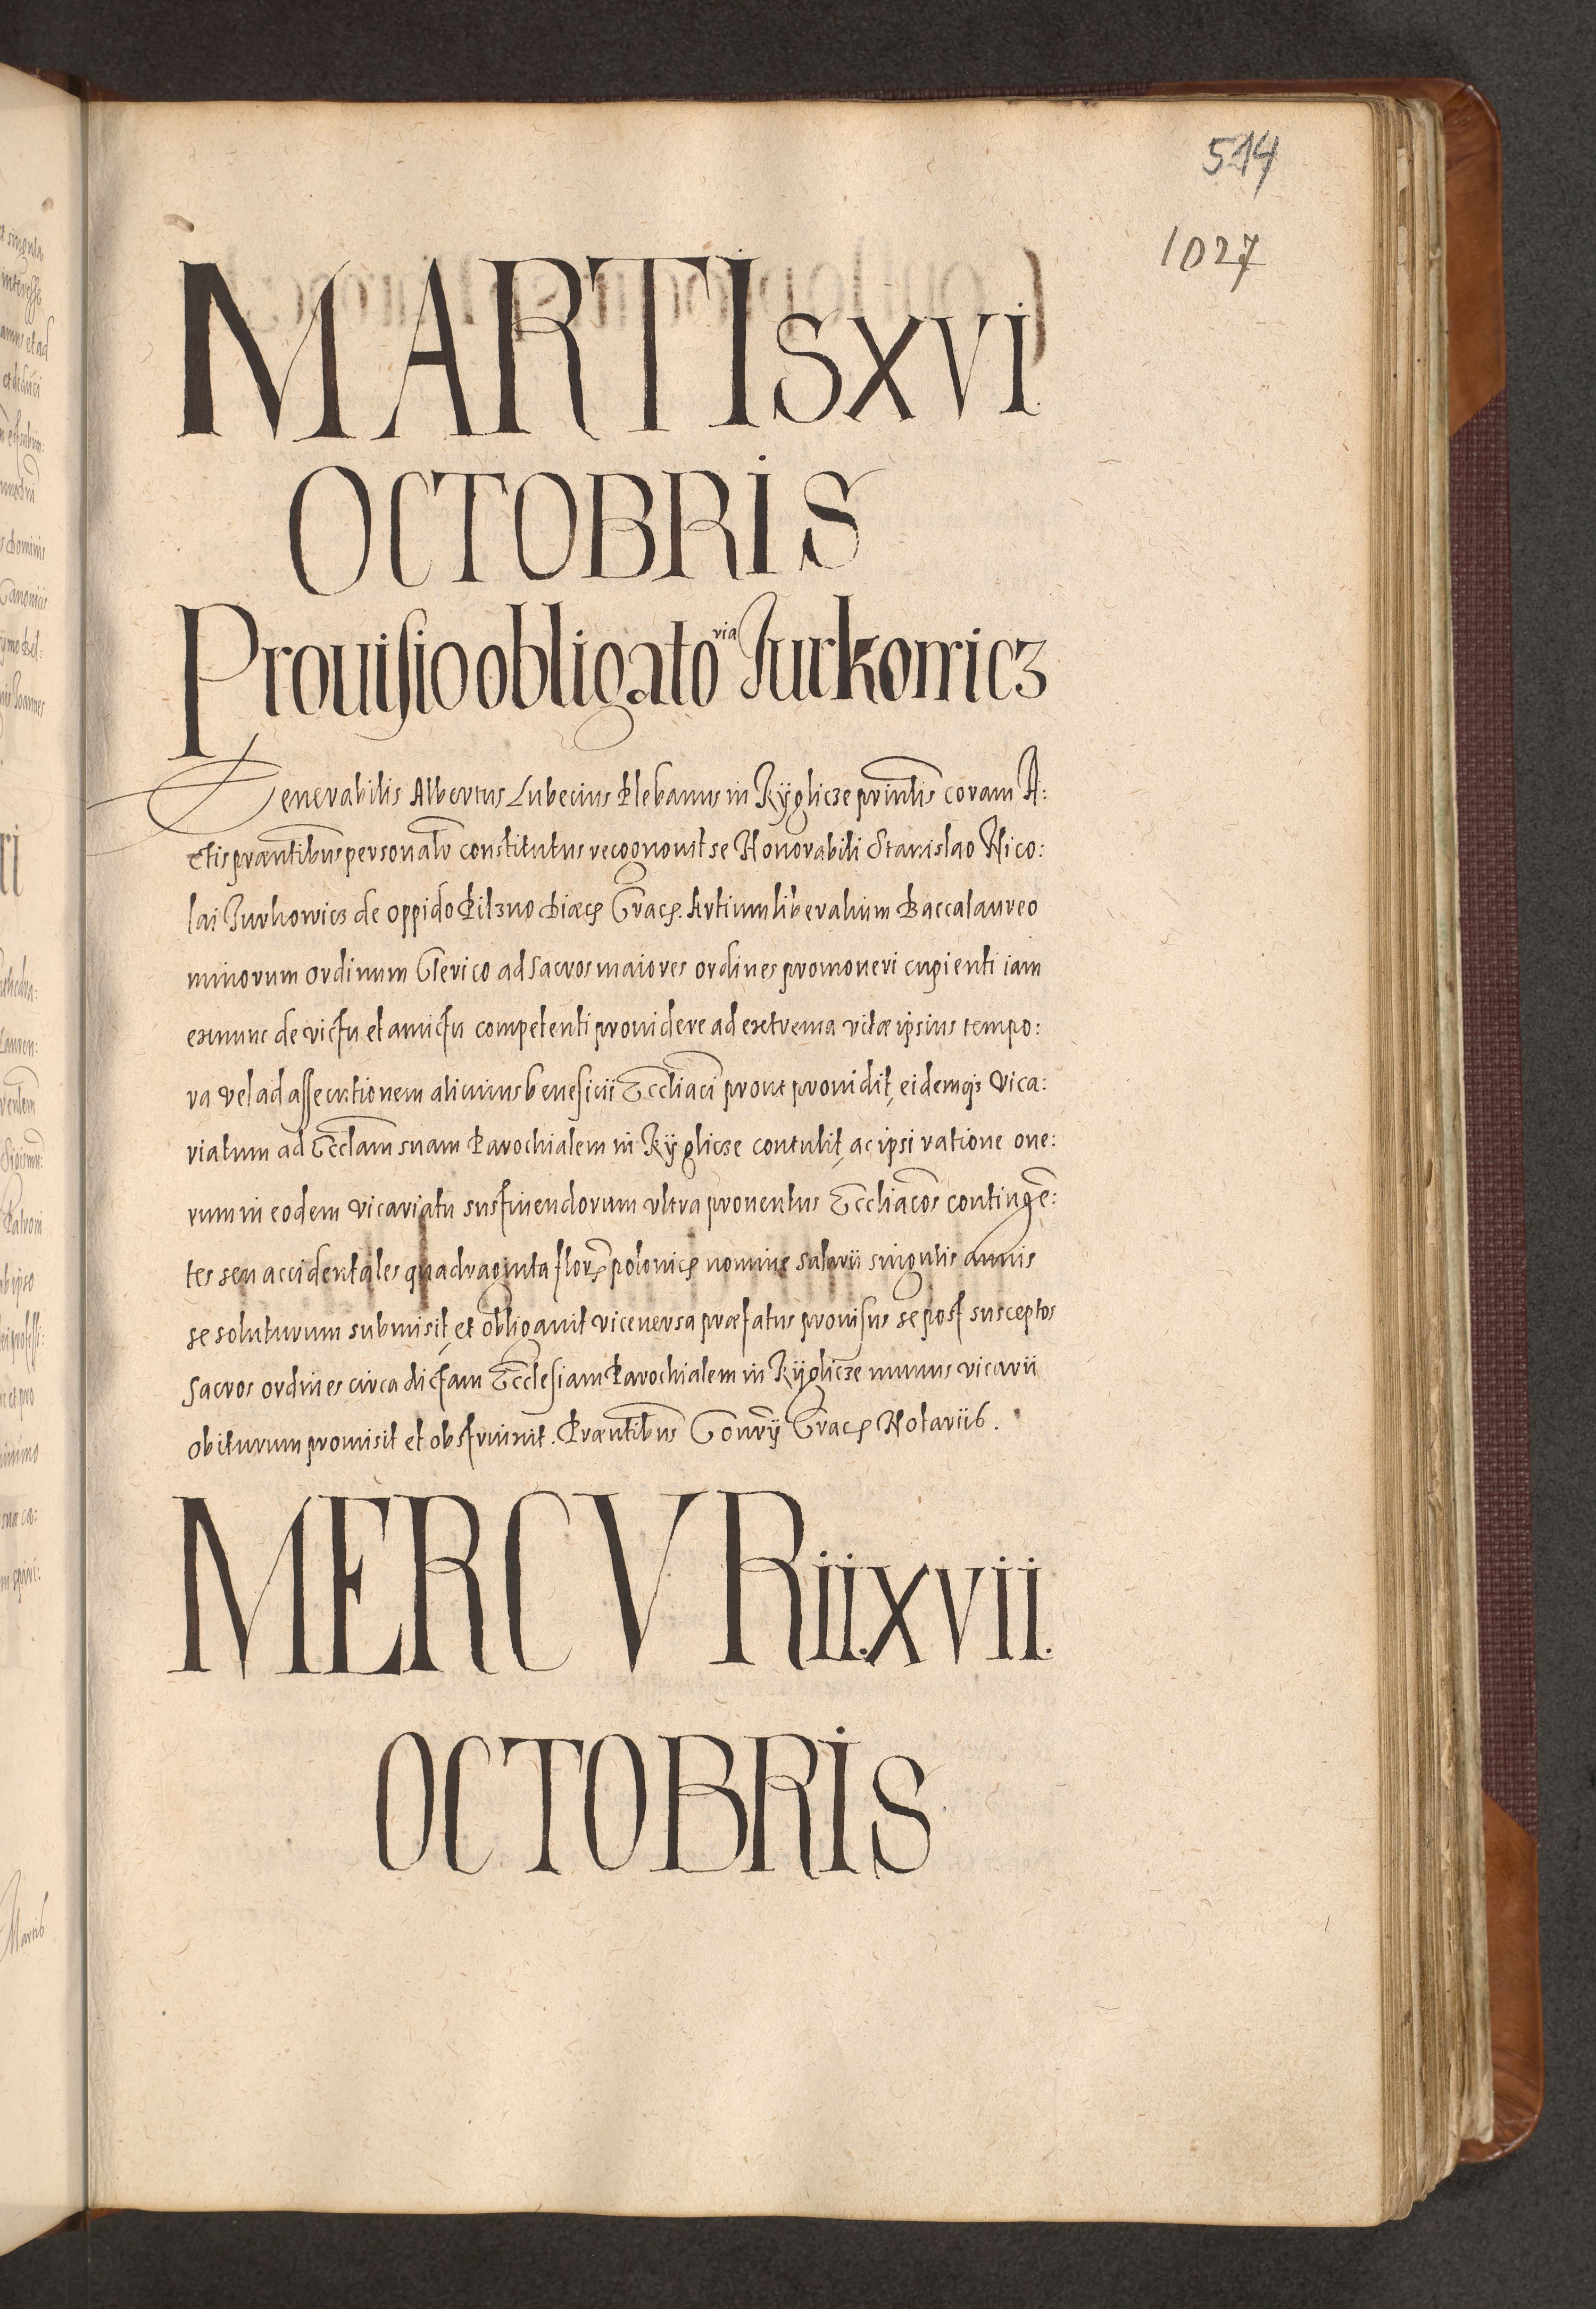 514
1027
MARTIS XVI
OCTOBRIS
Prouisio obligato^via Jurkowicz
Venerabilis Albertus Lubecius Plebanus in Ryglicze prīntis coram A:
ctis præntibus personalr constitutus recognouit se Honorabili Stanislao Nico:
lai Jurkowicz de oppido Pilzno Diæc Crac. Artium liberalium Baccalaureo
minorum ordinum Clerico ad sacros maiores ordines promoueri cupienti iam
exnunc de victu et amictu competenti prouidere ad extrema vitæ ipsius tempo:
ra vel ad assecutionem alicuius beneficii Eccliaci prout prouidit, eidemqs vica:
riatum ad Ecclam suam Parochialem in Ryglicze contulit, ac ipsi ratione one:
rum in eodem vicariatu sustinendorum vltra prouentus Eccliacos contingē:
tes seu accidentales quadraginta flor polonic nomine salarii singulis annis
se soluturum submisit, et obligauit viceuersa præfatus prouisus se post susceptos
sacros ordines circa dictam Ecclesiam Parochialem in Ryglicze munus vicarii
obiturum promisit et obstrinxit. Præntibus Conry Crac Notariis.
MERCVRii. xvii.
OCTOBRIS